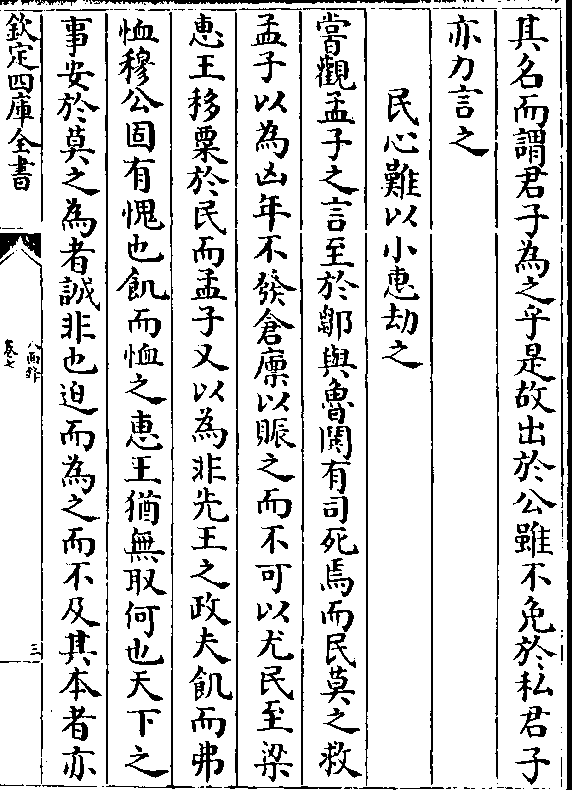 其名而謂君子為之乎是故出於公雖不免於私君子
亦力言之
民心難以小惠劫之
嘗觀孟子之言至於鄒與魯鬨有司死焉而民莫之救
孟子以為凶年不發倉廩以賑之而不可以尤民至梁
惠王移粟於民而孟子又以為非先王之政夫飢而弗
恤穆公固有愧也飢而恤之惠王猶無取何也天下之
事安於莫之為者誠非也迫而為之而不及其本者亦
欽定四庫全書
八面鋒
卷七
三